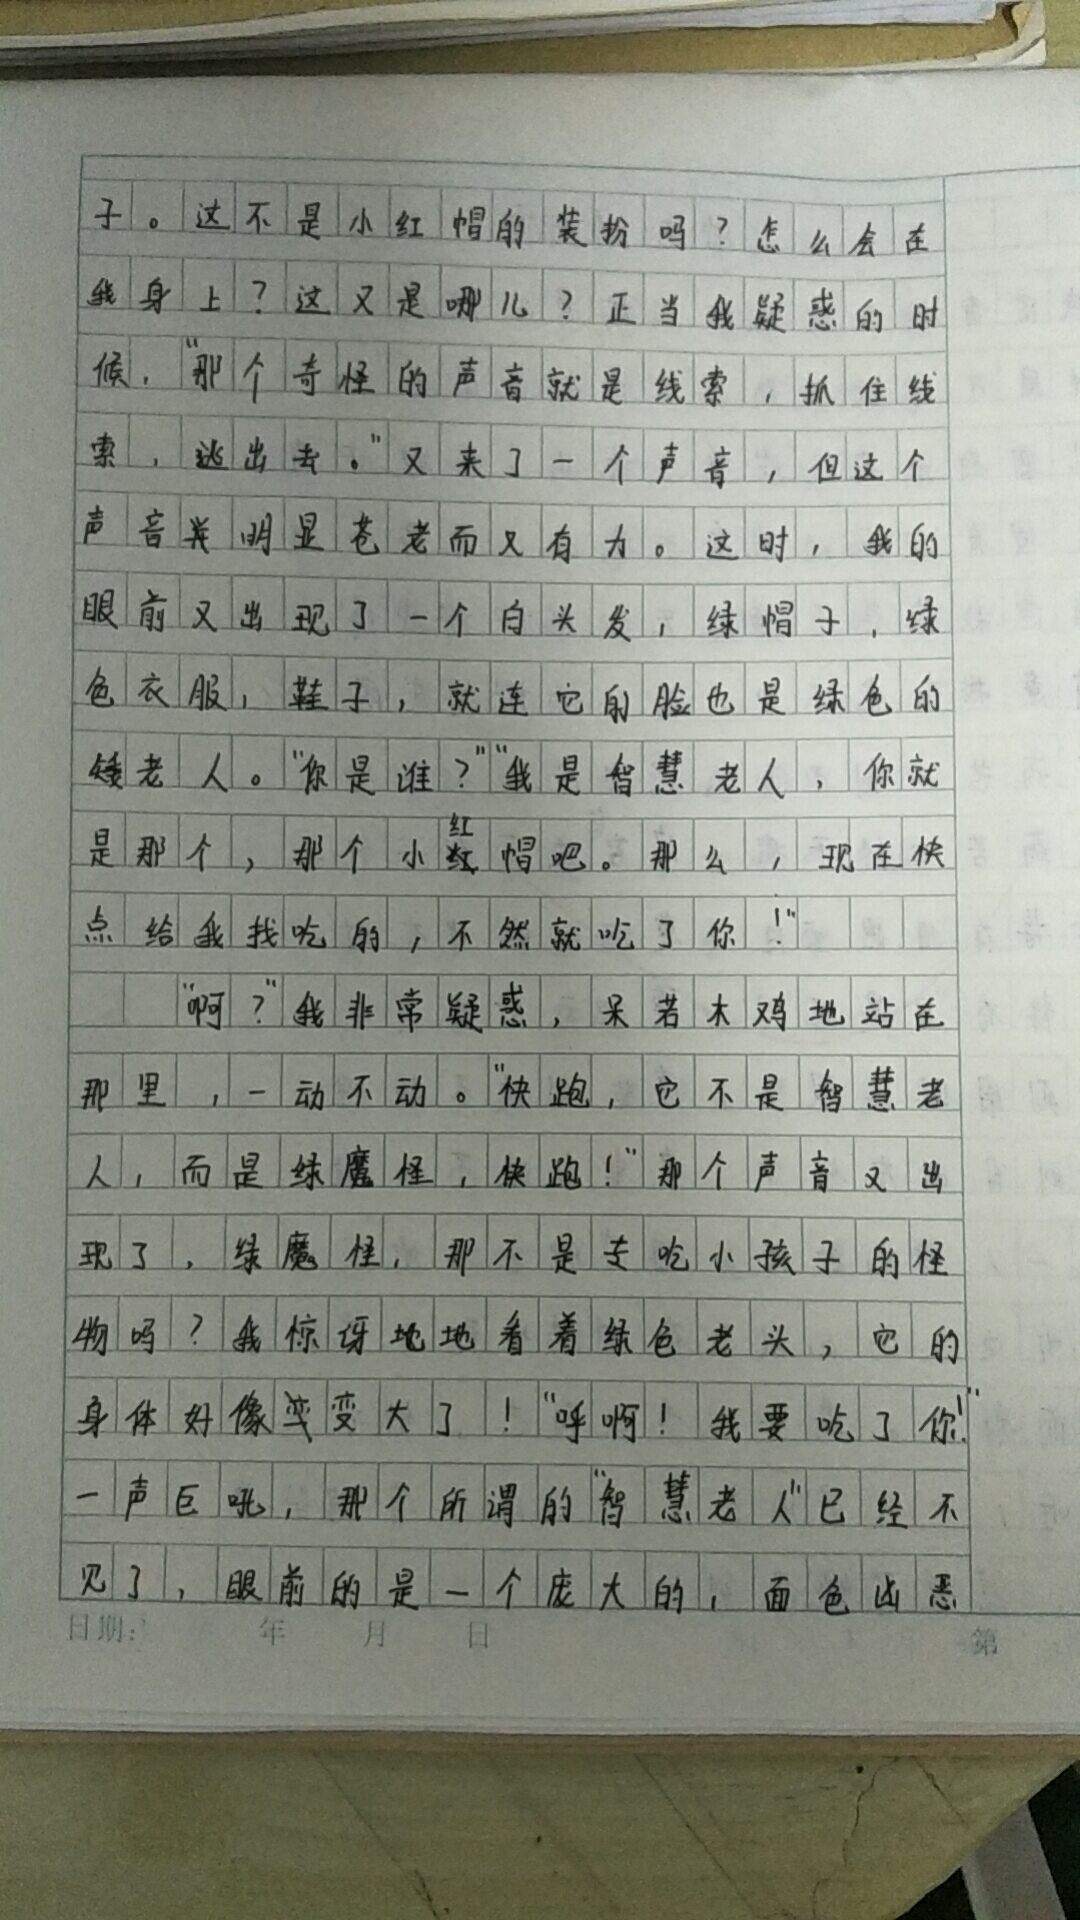 子。这不是小红帽的装扮吗？怎么会在
我身上？这又是哪儿？正当我疑惑的时
候，“那个奇怪的声音就是线索，抓住线
索，逃出去。”又来了一个声音，但这个
声音明显苍老而又有力。这时，我的
眼前又出现了一个白头发，绿帽子，绿
色衣服，鞋子，就连它的脸也是绿色的
矮老人。“你是谁？”“我是智慧老人，你就
是那个，那个小红帽吧。那么，现在快
点给我找吃的，不然就吃了你！”
“啊？”我非常疑惑，呆若木鸡地站在
那里，一动不动。“快跑，它不是智慧老
人，而是绿魔怪，快跑！”那个声音又出
现了，绿魔怪，那不是专吃小孩子的怪
物吗？我惊讶地地看着绿色老头，它的
身体好像变大了！“呼啊！我要吃了你！”
一声巨吼，那个所谓的“智慧老人”已经不
见了，眼前的是一个庞大的，面色凶恶
日期： 年 月 日
第